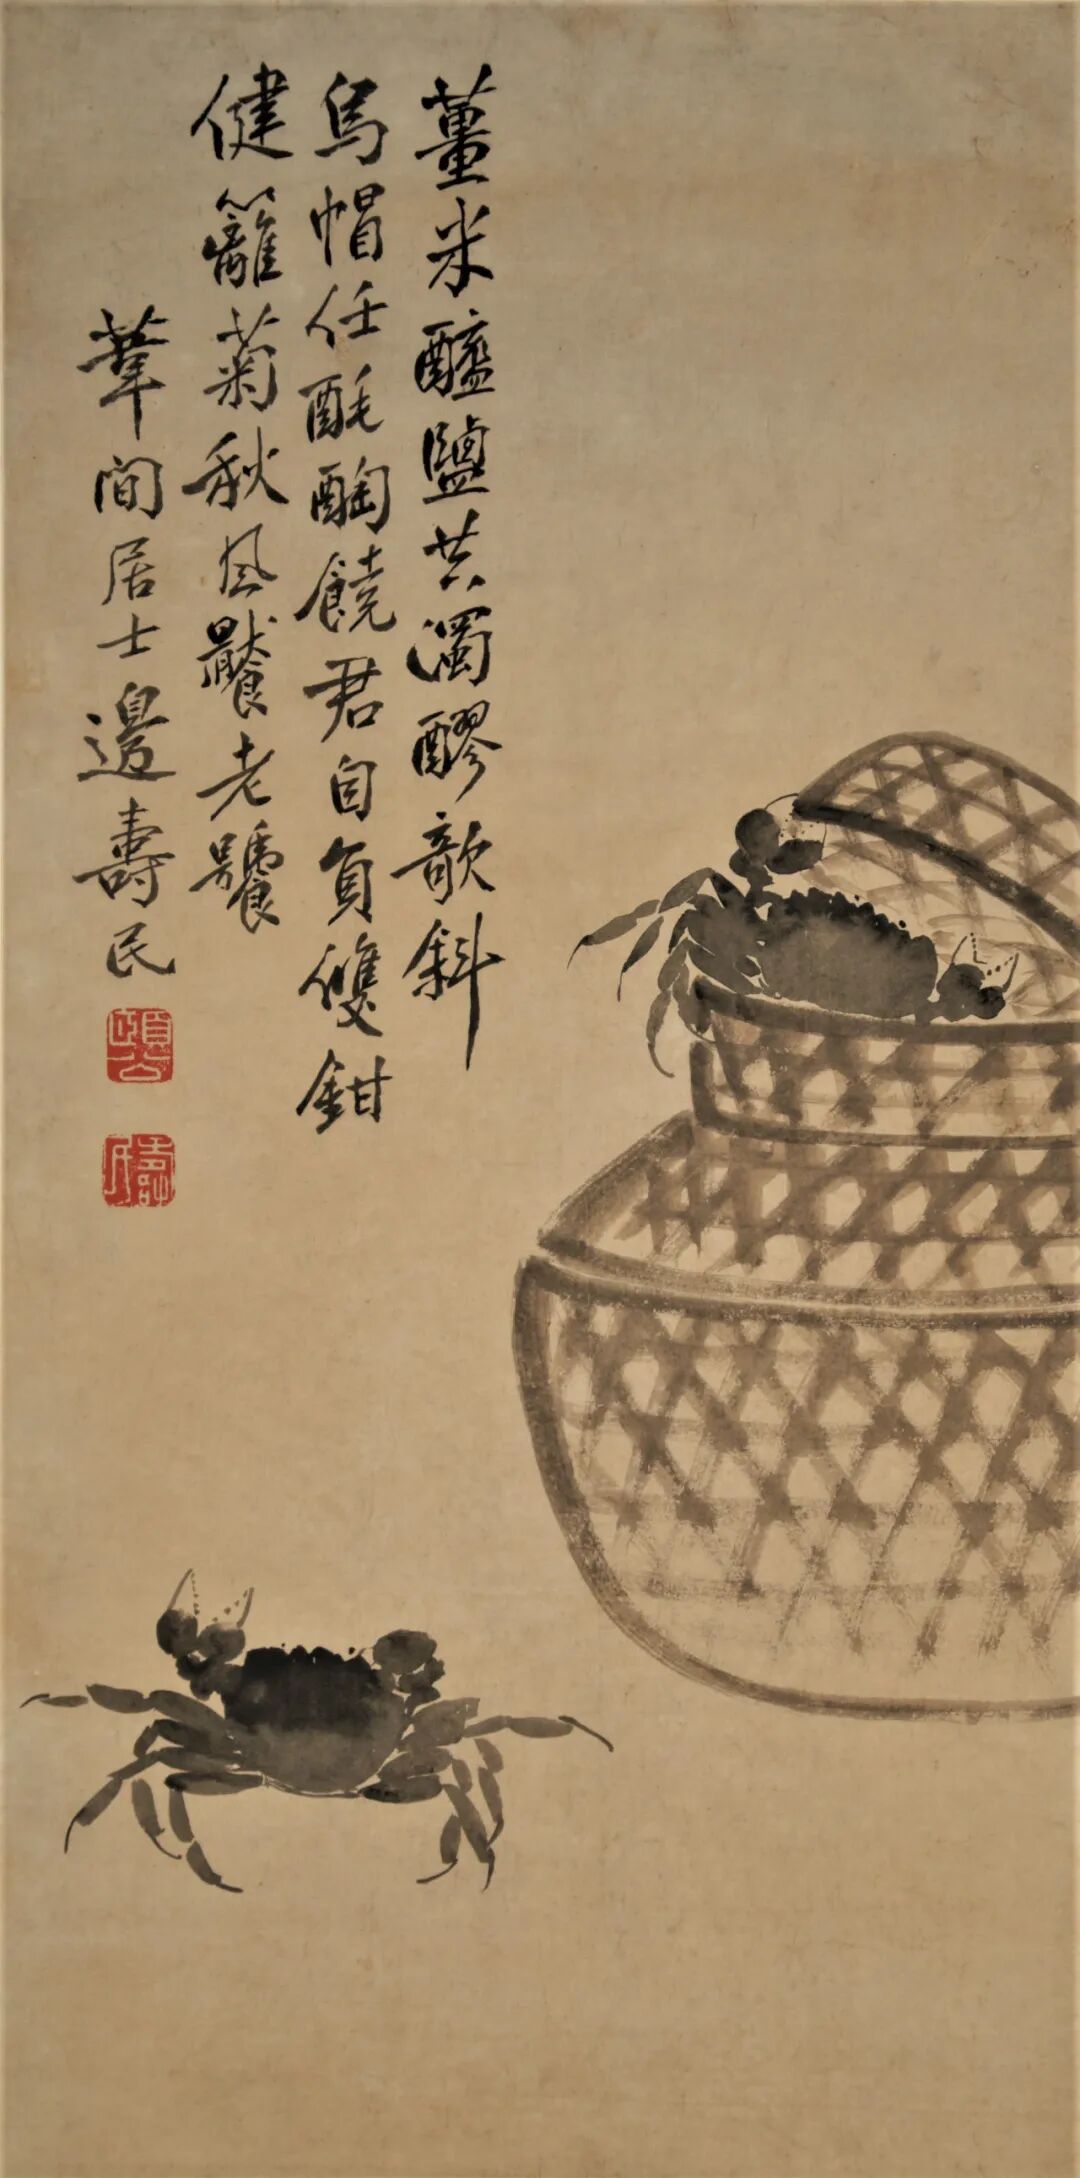 薑米醯鹽共濁醪欹斜
烏帽任酕醄饒君自負雙鉗
健籬菊秋風饜老饕
葦間居士邊壽民
頤公
壽民